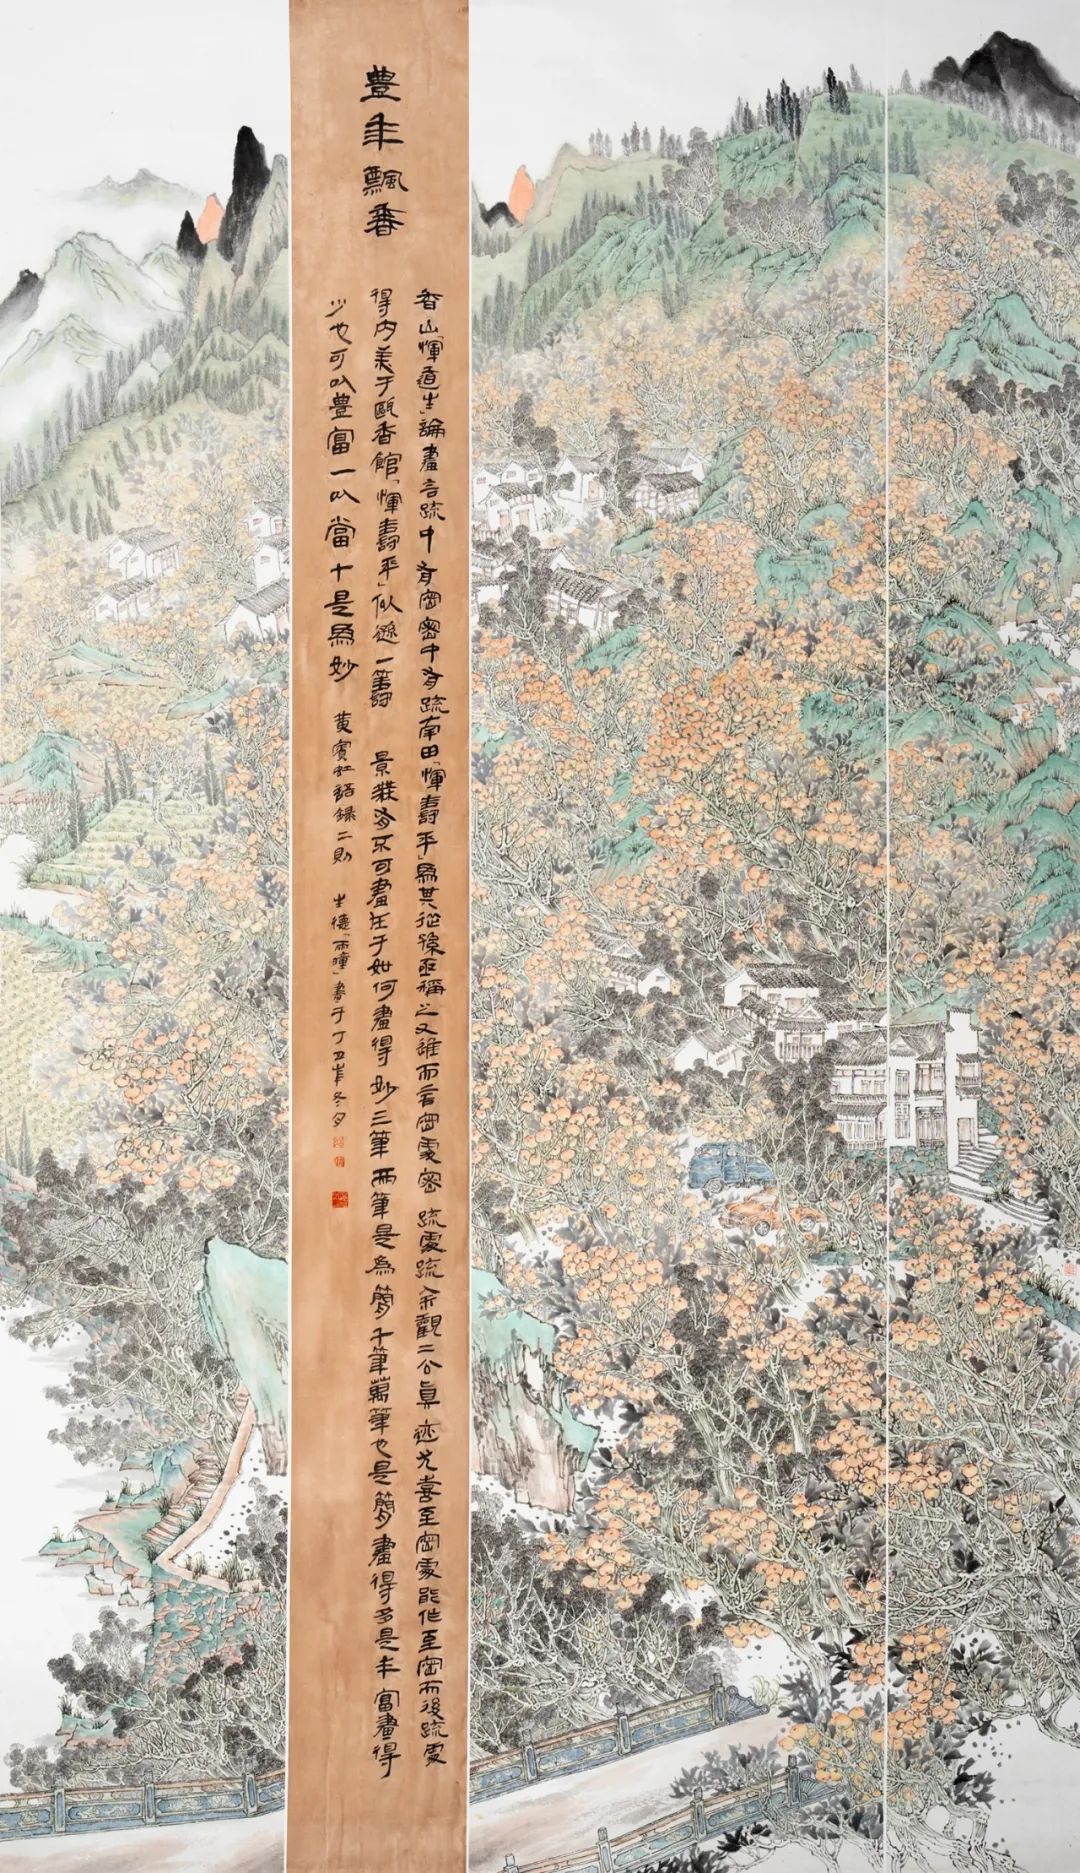 豊年飄香
香山「惲道生」論畫言疏中有密密中有疏南田「惲壽平」為其從孫亟稱之又進而言密處密疏處疏余觀二公真迹尤喜至密處能作至密而後疏處
得内美于甌香館「惲壽平」似遜一籌 景不可畫在于如何畫得妙三筆兩筆是為簡千筆萬筆也是簡畫得多是丰富畫得
少也可以豊富一以當十是為妙 黃賓虹語錄二則 生德「雨瞳」畫于丁丑年冬夕